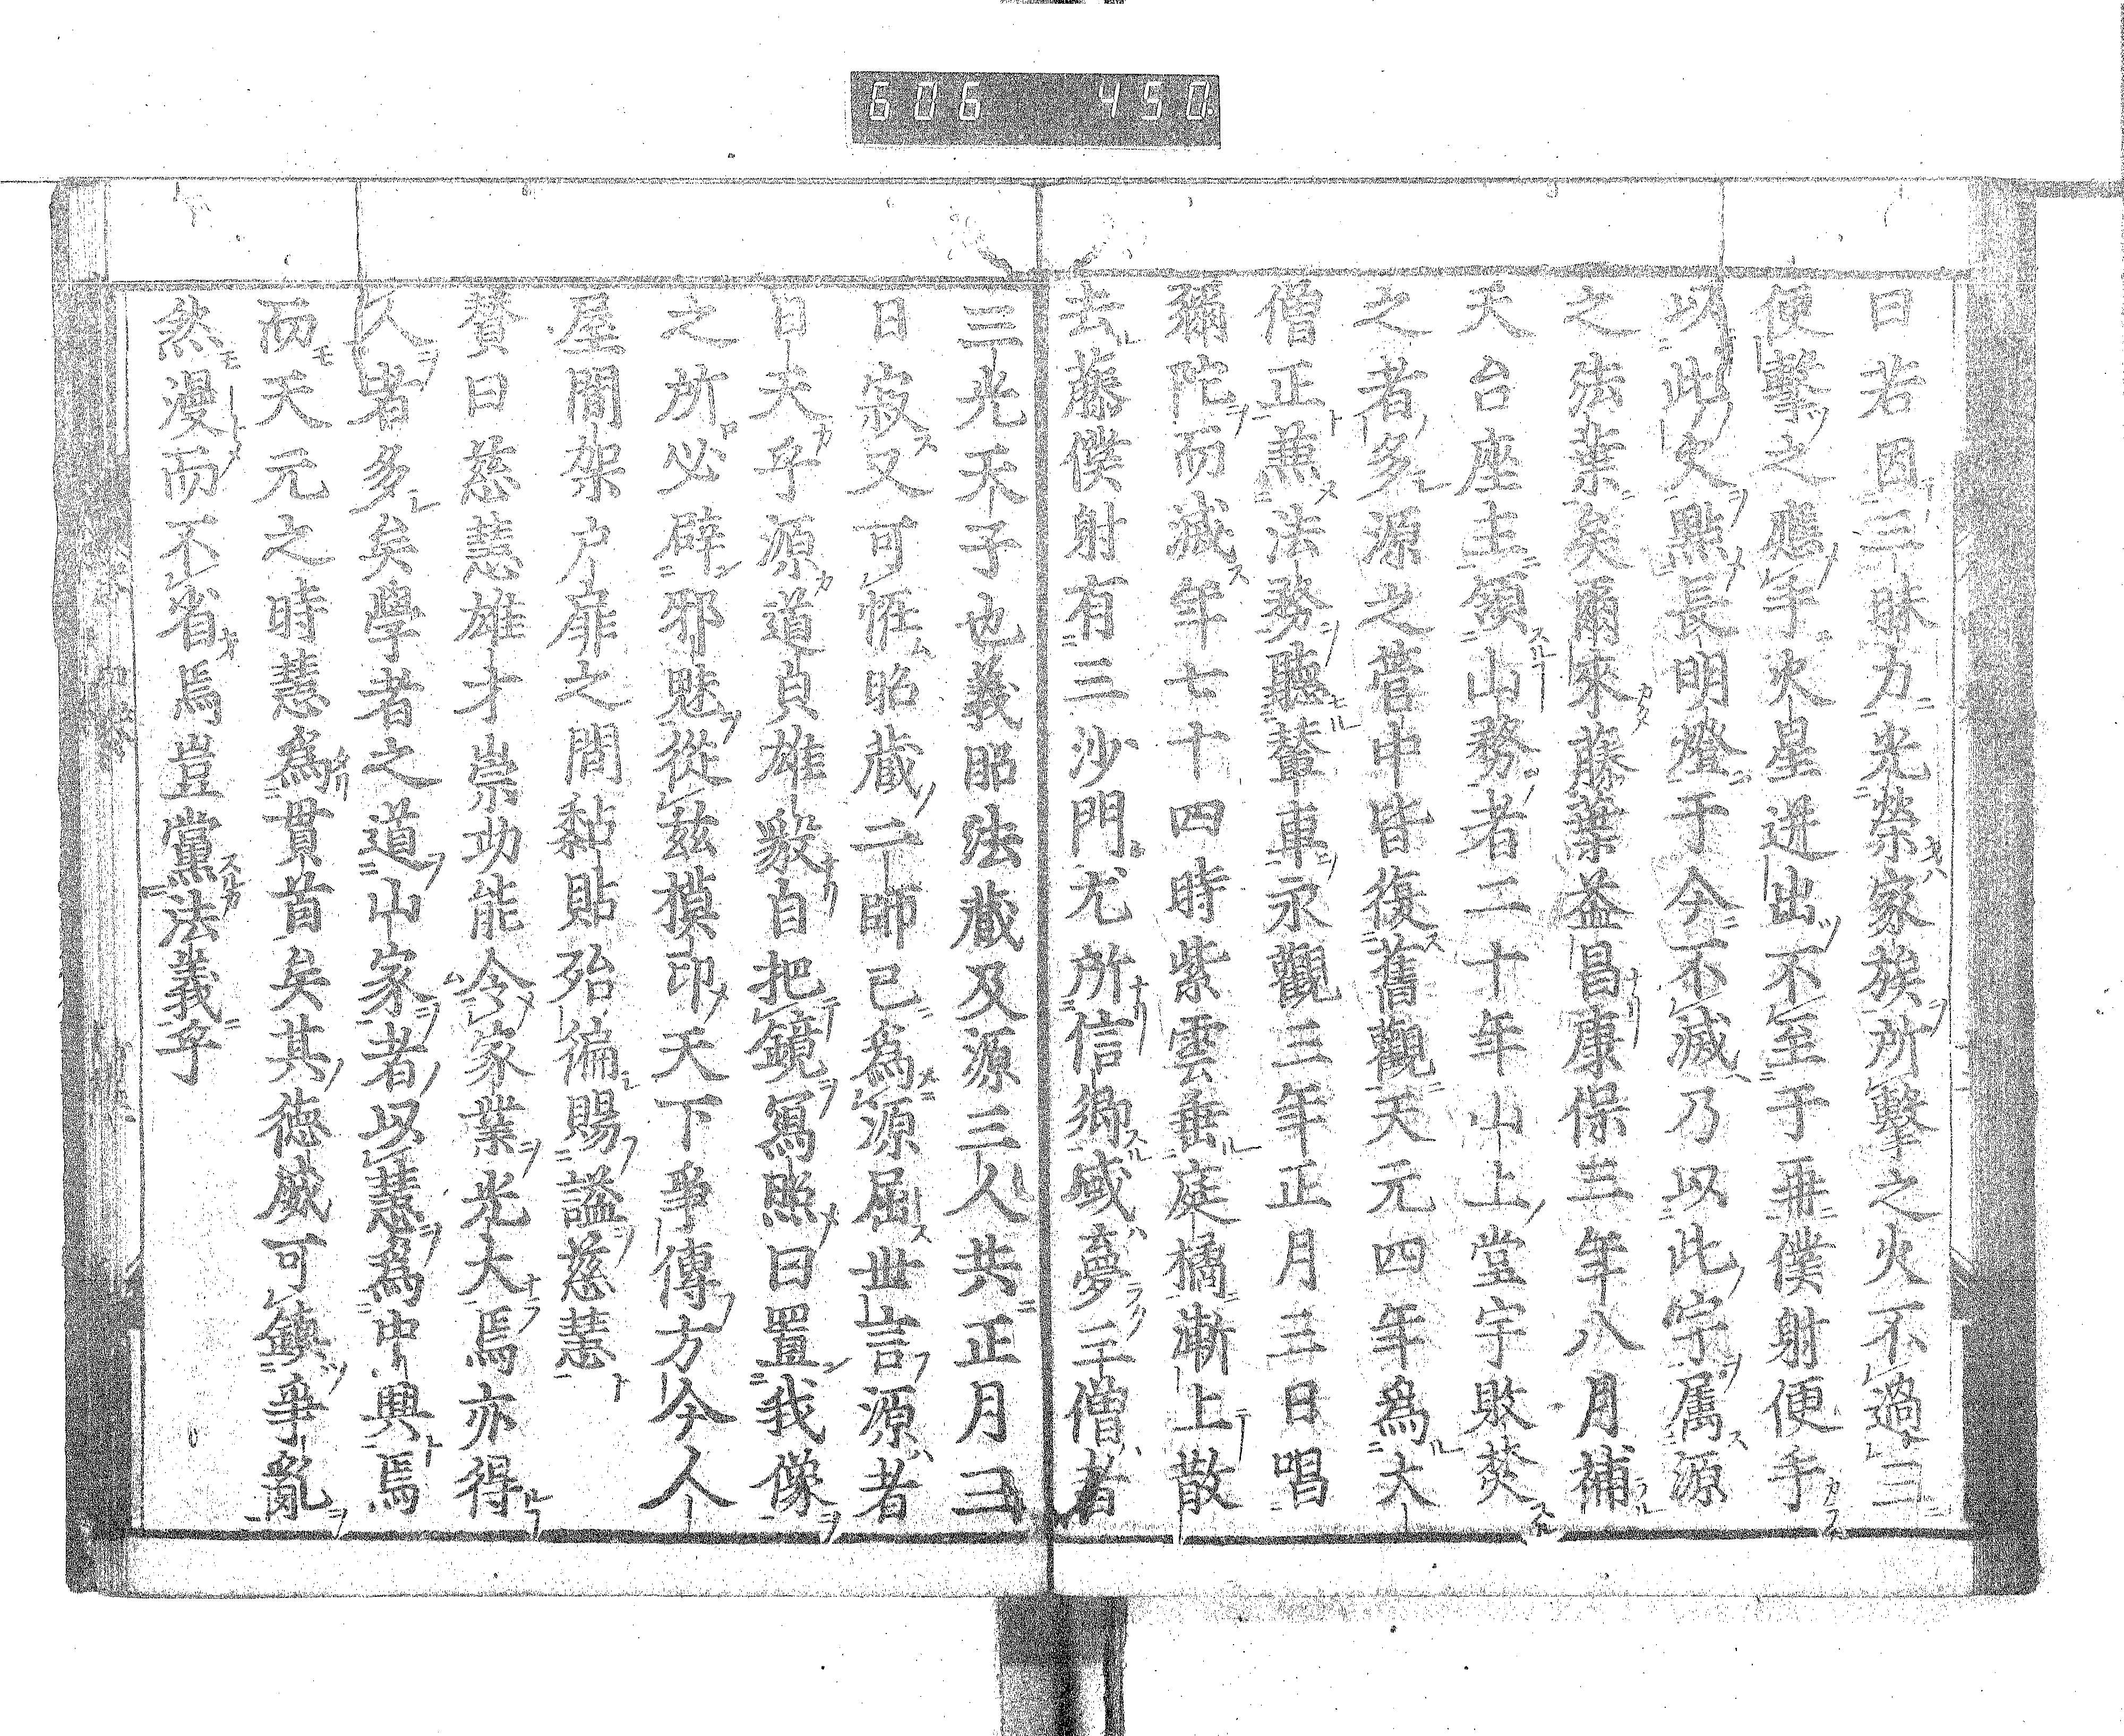 606 450
曰若因三昧力光榮家族所擊之火不過三
便擊之應手火星迸出不至于再僕射便手
以此火點長明燈于今不滅乃以此宗属源
之法葉矣爾來藤葉益昌康保三年八月補
天台座主領山務者二十年山上堂宇敗焚
之者多源之營中皆復舊觀天元四年爲大
僧正兼法務聽輦車永觀三年正月三日唱
彌陀而滅年七十四時紫雲垂庭橘漸上散
去藤僕射有三沙門尤所信郷感夢三僧者
三光天子也義昭法藏及源三人共正月三
日寂又可恠昭藏二師已爲源屈世言源者
日天乎源道貞雄毅自把鏡寫照曰置我像
之所必辟邪魅從茲摸印天下爭傳方今人
屋間架户扉之間黏貼殆徧賜謚慈慧
賛曰慈慧雄才崇功能令家業光大焉亦得
人者多矣學者之道山家者以慧爲中興焉
而天元之時慧爲貫首矣其德威可鎮爭亂
然漫而不省焉豈黨法義乎